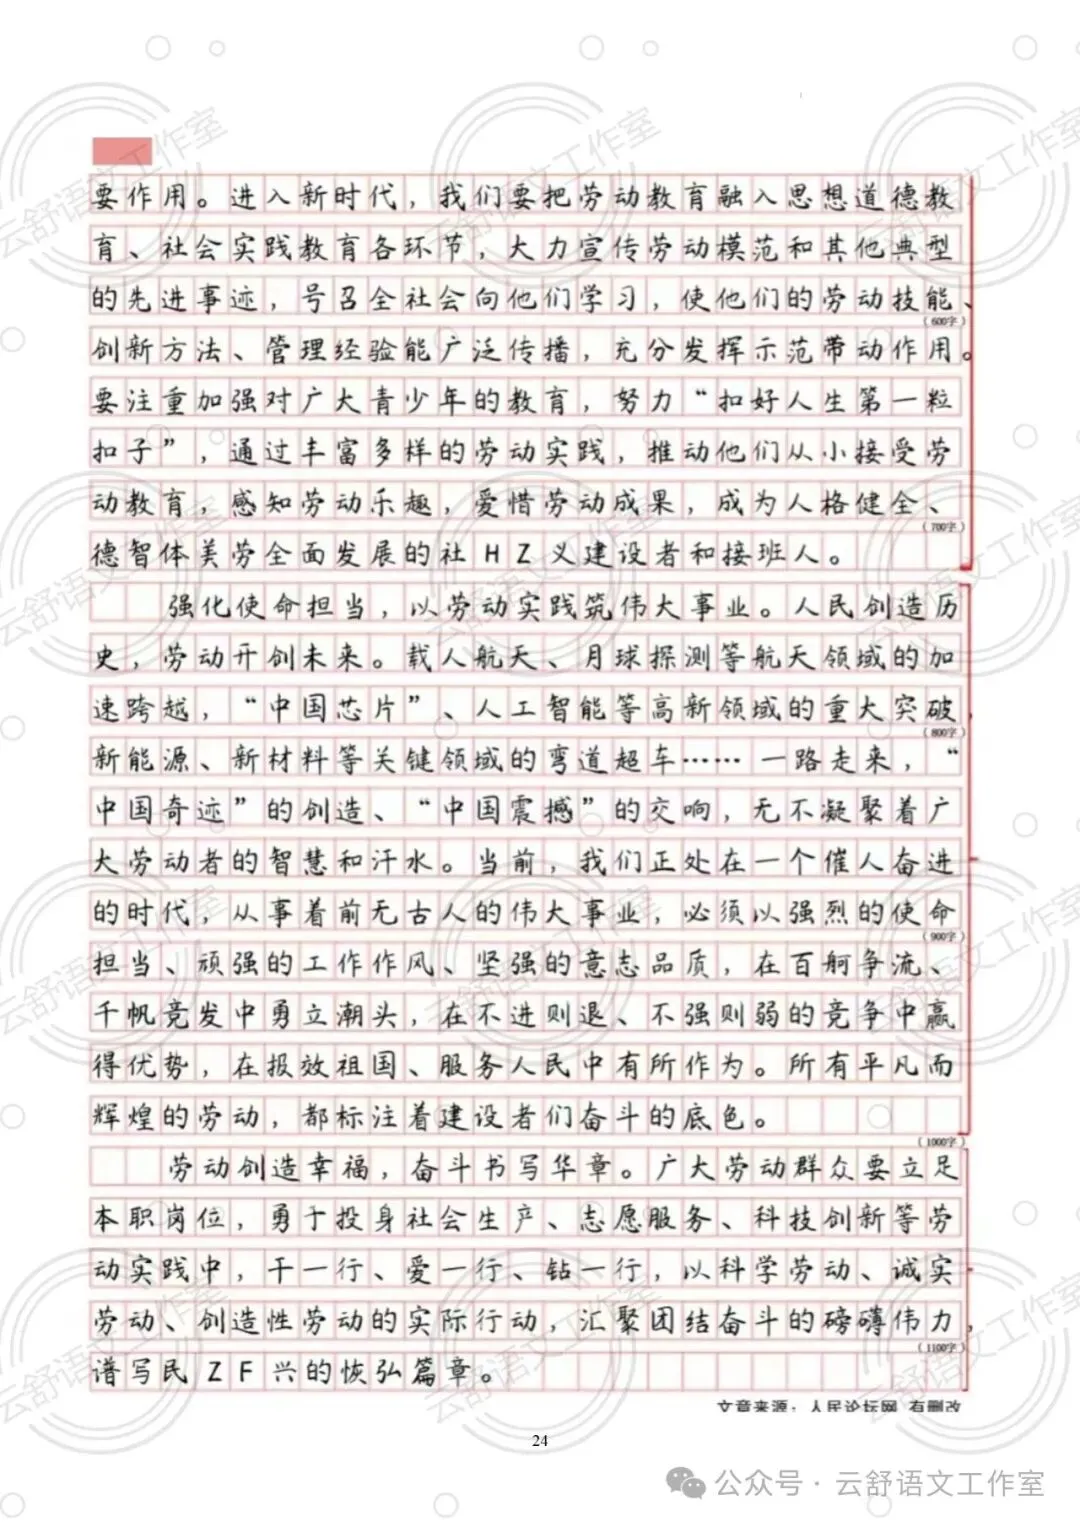 要作用。进入新时代，我们要把劳动教育融入思想道德教
育、社会实践教育各环节，大力宣传劳动模范和其他典型
的先进事迹，号召全社会向他们学习，使他们的劳动技能、
（600字）
创新方法、管理经验能广泛传播，充分发挥示范带动作用。
要注重加强对广大青少年的教育，努力“扣好人生第一粒
扣子”，通过丰富多样的劳动实践，推动他们从小接受劳
动教育，感知劳动乐趣，爱惜劳动成果，成为人格健全、
（700字）
德智体美劳全面发展的社HZ义建设者和接班人。
强化使命担当，以劳动实践筑伟大事业。人民创造历
史，劳动开创未来。载人航天、月球探测等航天领域的加
速跨越，“中国芯片”、人工智能等高新领域的重大突破，
（800字）
新能源、新材料等关键领域的弯道超车……一路走来，“
中国奇迹”的创造、“中国震撼”的交响，无不凝聚着广
大劳动者的智慧和汗水。当前，我们正处在一个催人奋进
的时代，从事着前无古人的伟大事业，必须以强烈的使命
（900字）
担当、顽强的工作作风、坚强的意志品质，在百舸争流、
千帆竞发中勇立潮头，在不进则退、不强则弱的竞争中赢
得优势，在报效祖国、服务人民中有所作为。所有平凡而
辉煌的劳动，都标注着建设者们奋斗的底色。
（1000字）
劳动创造幸福，奋斗书写华章。广大劳动群众要立足
本职岗位，勇于投身社会生产、志愿服务、科技创新等劳
动实践中，干一行、爱一行、钻一行，以科学劳动、诚实
劳动、创造性劳动的实际行动，汇聚团结奋斗的磅礴伟力，
（1100字）
谱写民ZF兴的恢弘篇章。
文章来源：人民论坛网 有删改
24
公众号·云舒语文工作室
云舒语文工作室